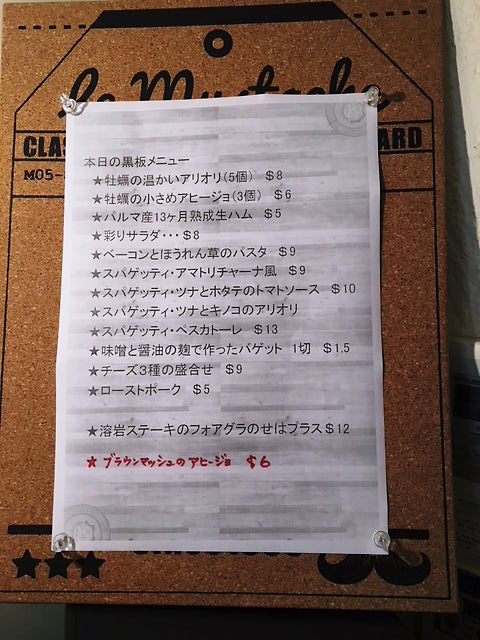 Le Mustache
CLAS
ARD
M05-
本日の黒板メニュー
★牡蠣の温かいアリオリ(5個) $8
★牡蠣の小さめアヒージョ(3個) $6
★パルマ産13ヶ月熟成生ハム $5
★彩りサラダ・・・$8
★ベーコンとほうれん草のパスタ $9
★スパゲッティ・アマトリチャーナ風 $9
★スパゲッティ・ツナとホタテのトマトソース $10
★スパゲッティ・ツナとキノコのアリオリ
★スパゲッティ・ペスカトーレ $13
★味噌と醤油の麹で作ったバゲット 1切 $1.5
★チーズ3種の盛合せ $9
★ローストポーク $5
★溶岩ステーキのフォアグラのせはプラス$12
★ブラウンマッシュのアヒージョ $6